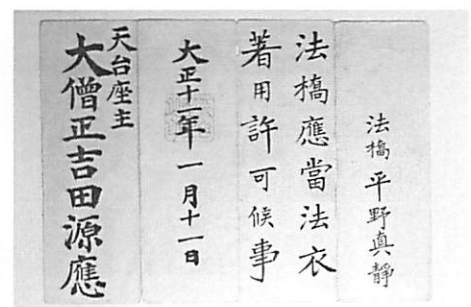 法橋 平野真靜
法橋應當法衣
著用許可候事
大正十二年一月十一日
天台座主
大僧正吉田源應